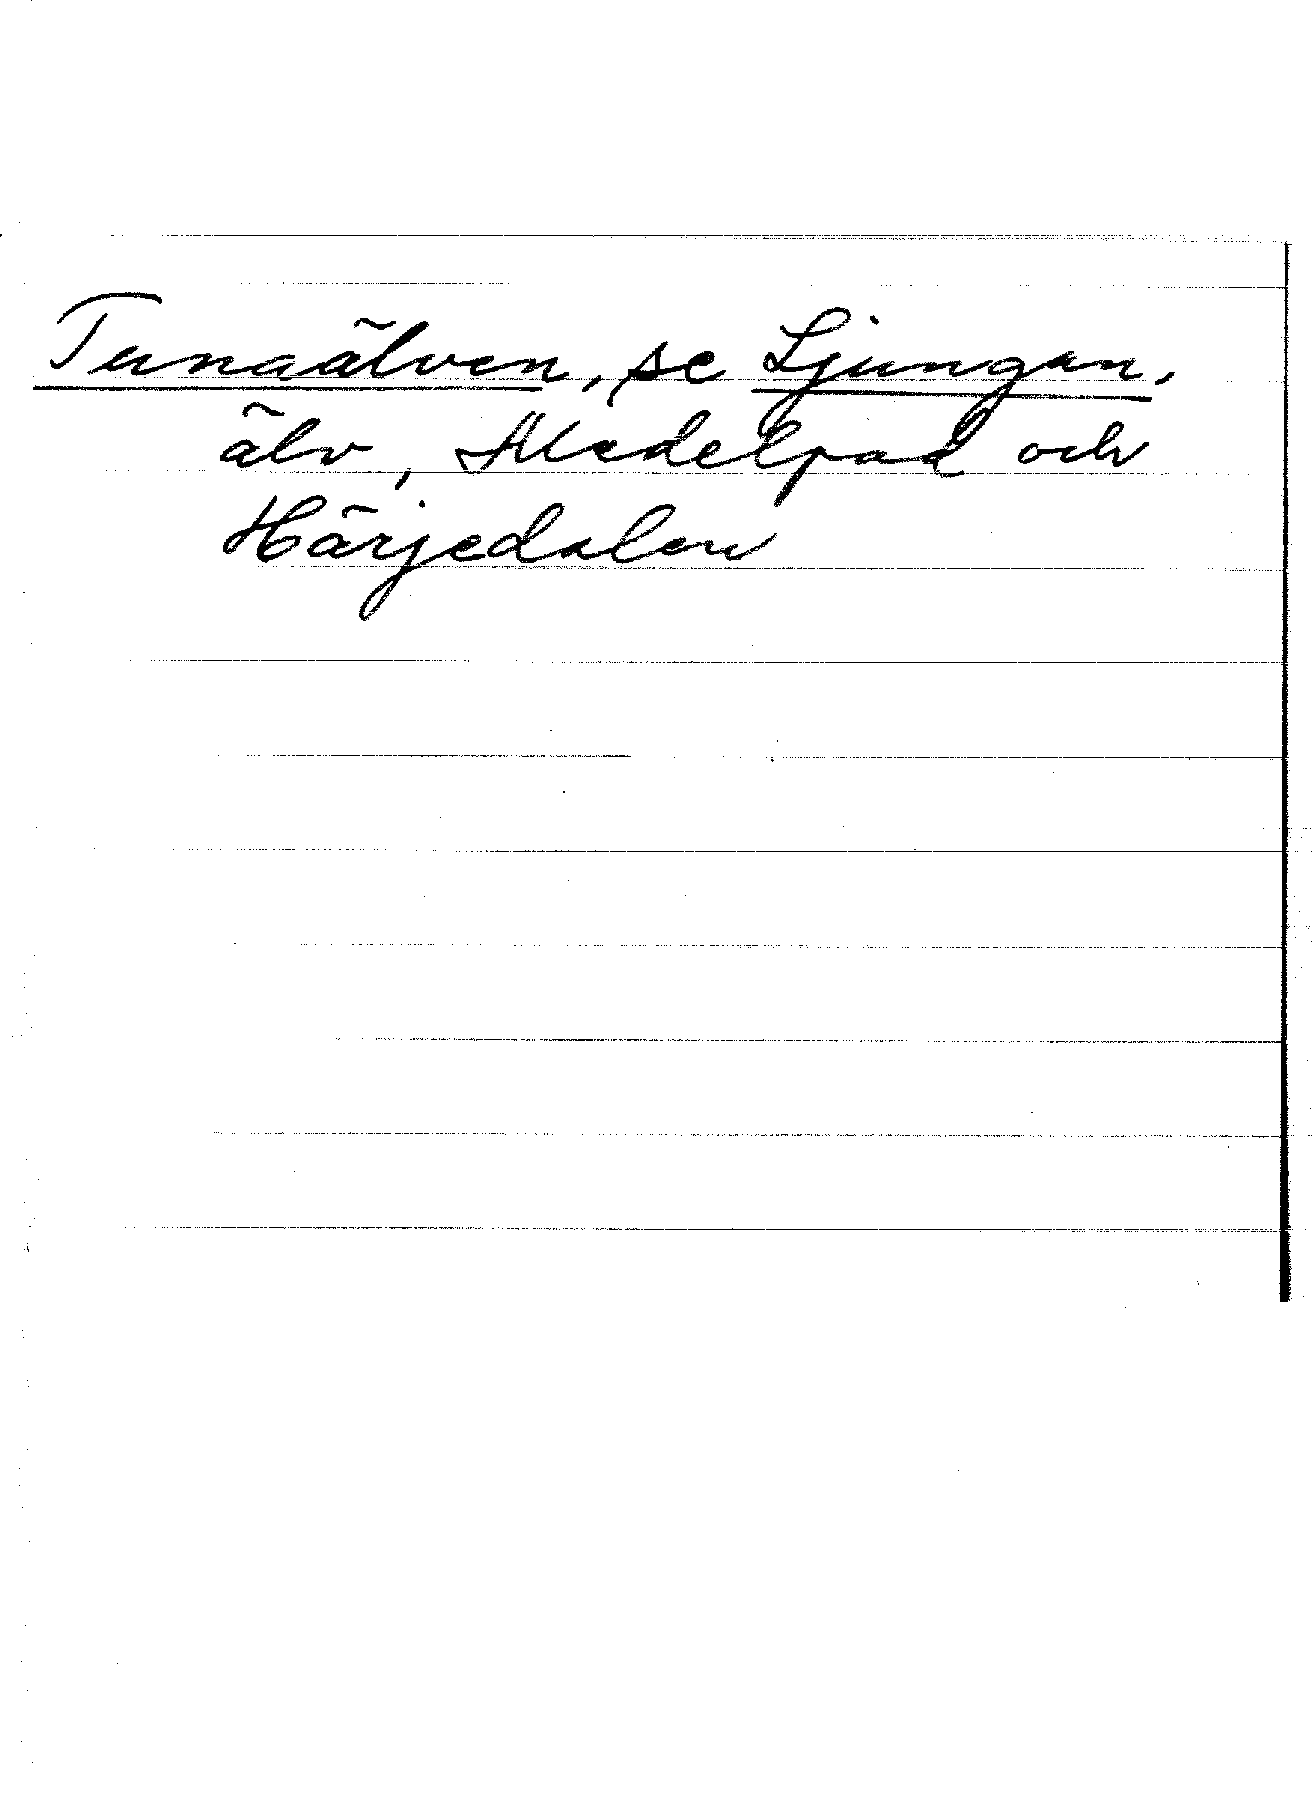 Tunaälven, se Ljungan,
älv, Medelpad och
Härjedalen